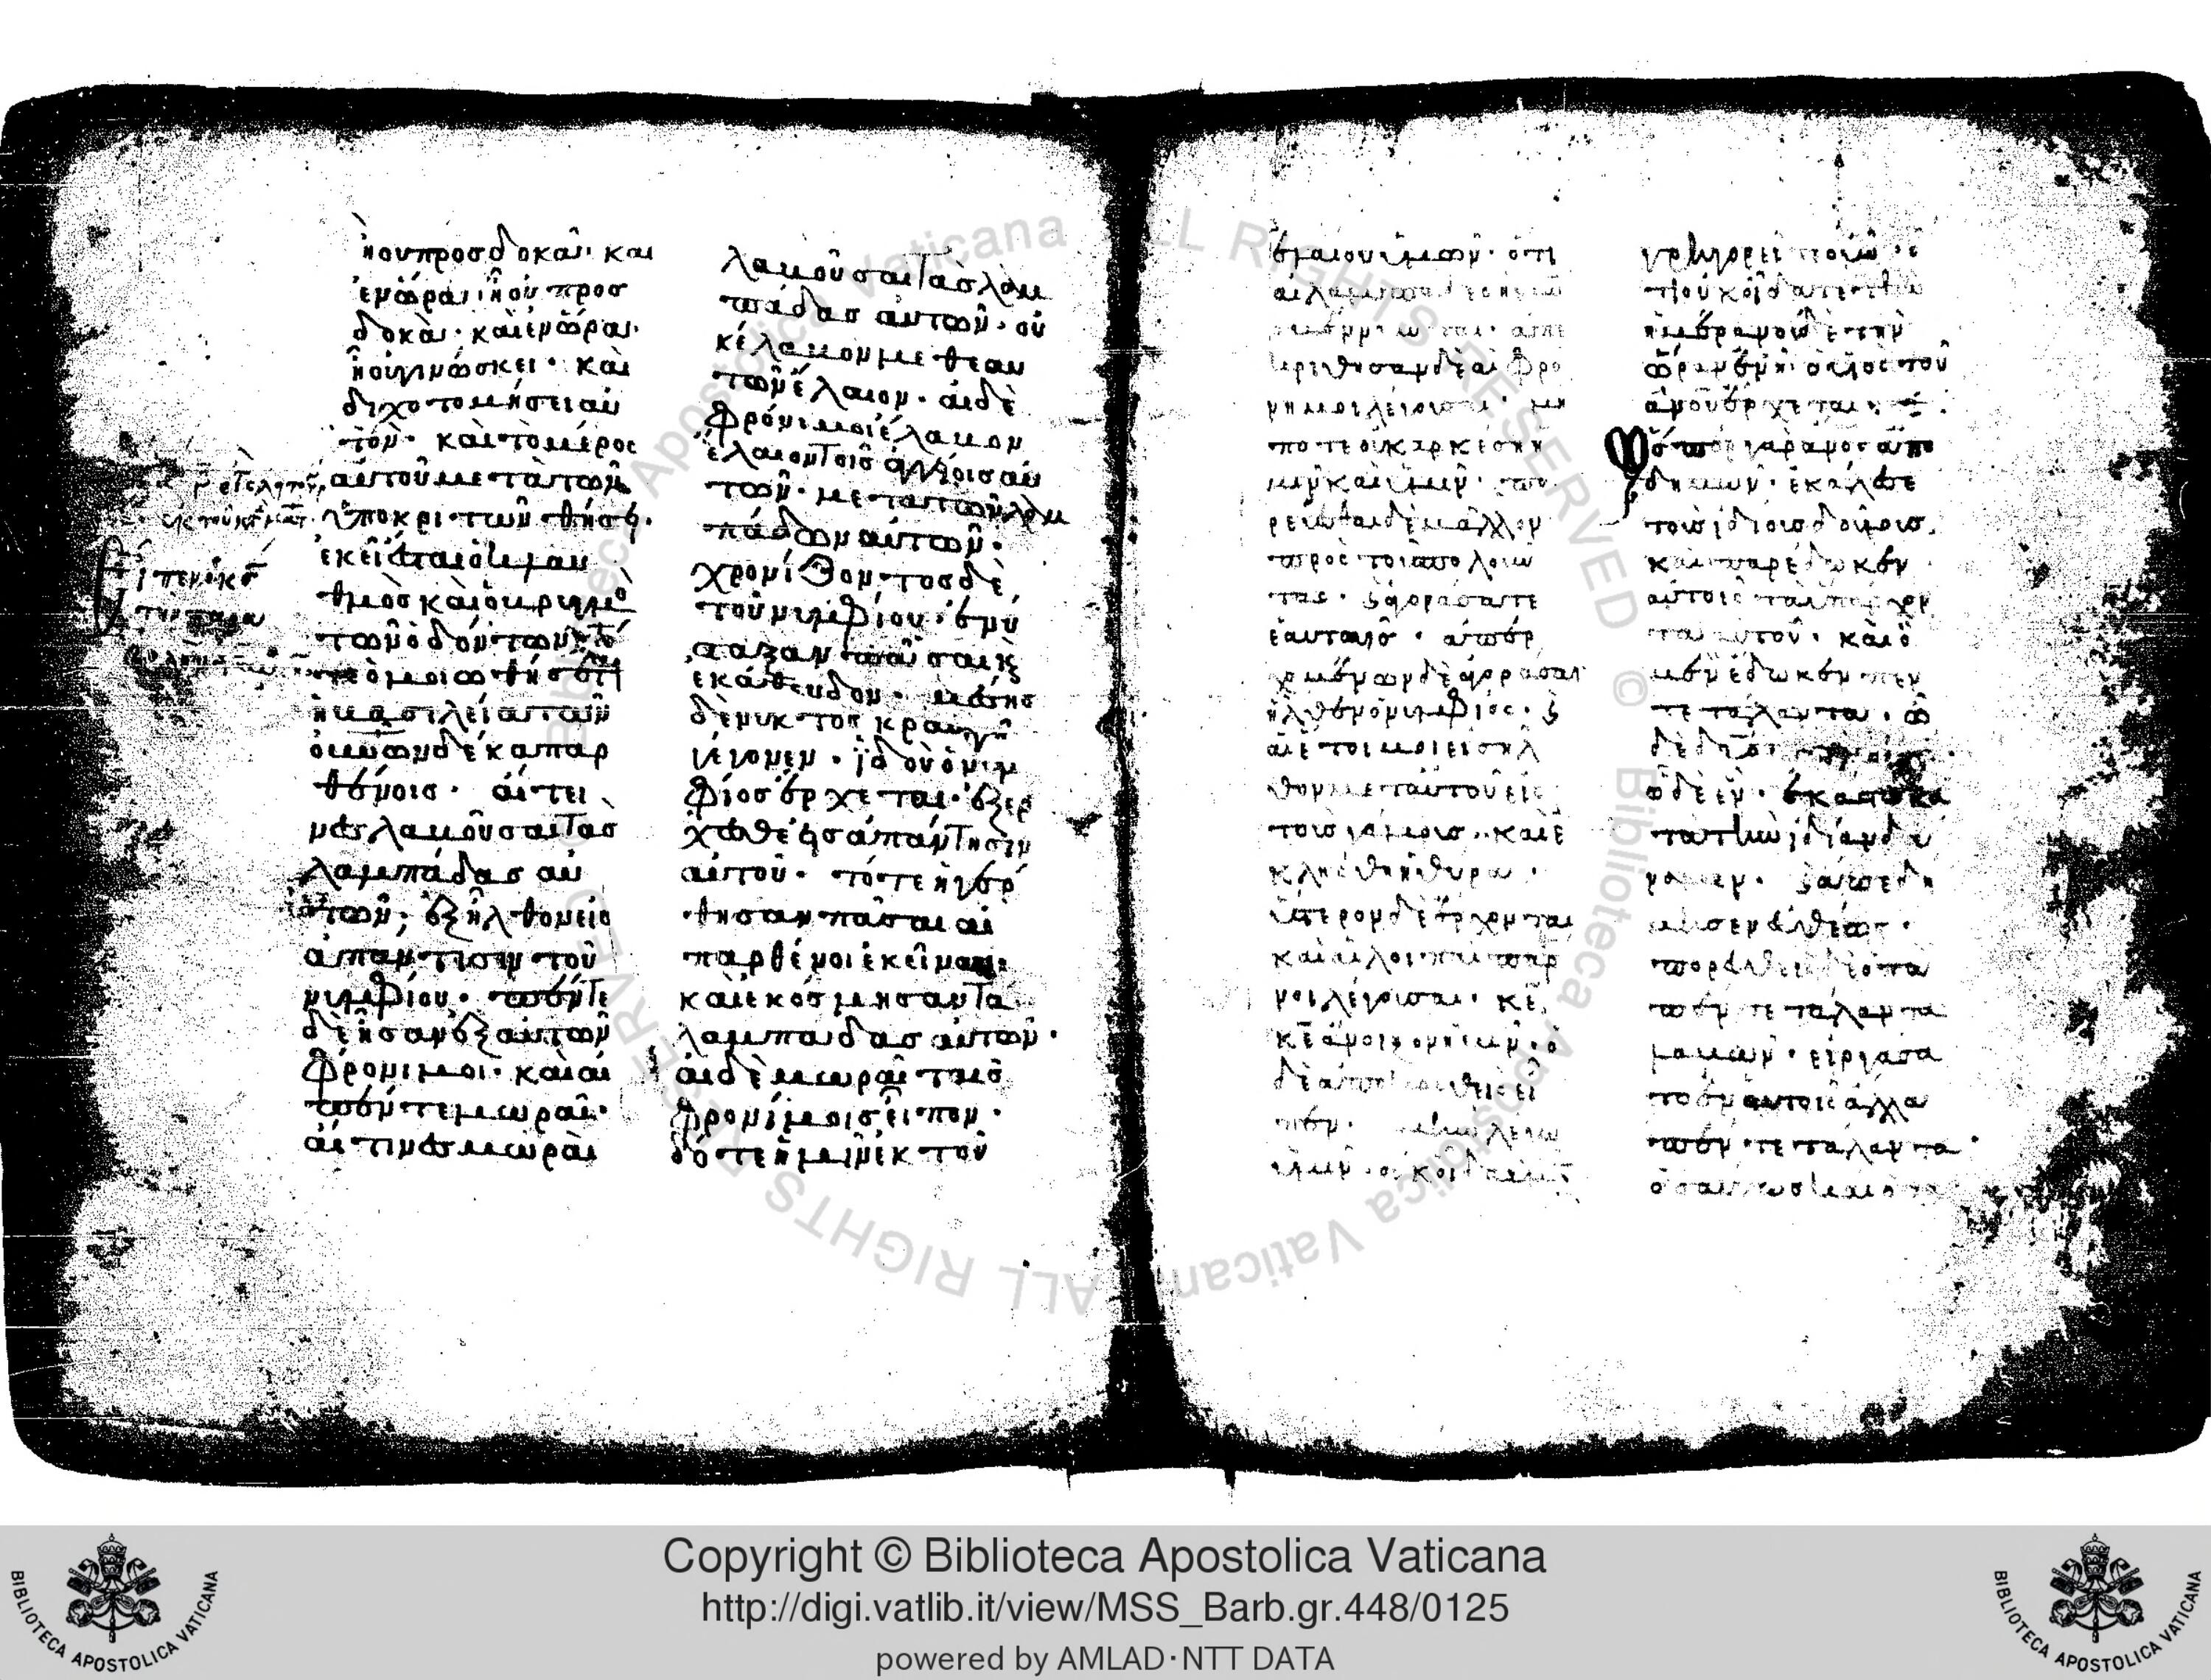 ἡ οὐ προσδοκᾶι· καὶ
ἐν ὥραι ἧ οὐ προσ
δοκᾶ· καὶ ἐν ὥραι·
ἧ οὐ γινώσκει· καὶ
διχοτομήσει αὐ
τόν· καὶ τὸ μέρος
αὐτοῦ μετὰ τῶν
ὑποκριτῶν θήσει·
ἐκεῖ ἔσται ὁ κλαυ
θμὸς καὶ ὁ βρυγμὸ
τῶν ὀδόντων
τε ὁμοιωθήσεται
ἡ βασιλεία τῶν
οὐνῶν δέκα παρ
θένοις· αἵτι
νες λαβοῦσαι τὰς
λαμπάδας αὐ
τῶν, ἐξῆλθον εἰς
ἀπάντισιν τοῦ
νυμφίου· πέντε
δὲ ἦσαν ἐξ αὐτῶν
φρόνιμοι· καὶ αἱ
πέντε μωραί·
αἵτινες μωραὶ
λαβοῦσαι τὰς λαμ
πάδας αὐτῶν· οὐ
κ ἔλαβον μεθ ἑαυ
τῶν ἔλαιον· αἱ δὲ
φρόνιμοι ἔλαβον
ἔλαιον τοῖς ἀγγείοις αὐ
τῶν· μετὰ τῶν λαμ
πάδων αὐτῶν·
χρονίζοντος δὲ
τοῦ νυμφίου· ἐνύ
σταξαν πᾶσαι κ
ἐκάθευδον· μέσης
δὲ νυκτὸς κραυγὴ
γέγονεν· ἰδοὺ ὁ νυμ
φίος ἔρχεται· ἐξέρ
χεσθε εἰς ἀπάντησιν
αὐτοῦ· τότε ἠγέρ
θησαν πᾶσαι αἱ
παρθένοι ἐκεῖναι·
καὶ ἐκόσμησαν τὰ
λαμπάδας αὐτῶν·
αἱ δὲ μωραὶ ταῖς
φρονίμοις εἶπον·
δότε ἡμῖν ἐκ τοῦ
ἐλαίου ὑμῶν· ὅτι
αἱ λαμπάδες ἡμῶ
σβέννυνται· ἀπε
κρίθησαν δὲ αἱ φρό
νημοι λέγουσαι· μή
ποτε οὐκ ἀρκέσει
ἡμῖν καὶ ὑμῖν· πο
ρεύεσθαι δὲ μᾶλλον
πρὸς τοὺς πωλοῦν
τας· κ ἀγοράσατε
ἑαυταῖς· ἀπερ
χομένων δὲ ἀγοράσαι
ἦλθεν ὁ νυμφίος· κ
αἱ ἕτοιμοι εἰσῆλ
θον μετ αὐτοῦ εἰς
τοὺς γάμους· καὶ ἐ
κλείσθη ἡ θύρα·
ὕστερον δὲ ἔρχονται
καὶ αἱ λοιπαὶ παρ
νοι λέγουσαι· κε
κε ἄνοιξον ἡμῖν· ὁ
δὲ ἀποκριθεὶς εἶ
πεν· ἀμὴν λέγω
ὑμῖν· οὐκ οἶδα ὑμ
γρηγορεῖτε οὖν· ὅ
τι οὐκ οἴδατε τὴν
ἡμέραν οὐδὲ τὴν
ὥραν ἐν ἧ ὁ υἱὸς τοῦ
ἀνοῦ ἔρχεται·
ὥσπερ γὰρ ἄνος ἀπο
δημῶν· ἐκάλεσε
τοὺς ἰδίους δούλους·
καὶ παρέδωκεν
αὐτοῖς τὰ ὑπάρχον
τα αὐτοῦ· καὶ ὧ
μὲν ἔδωκεν πέν
τε τάλαντα· ὧ
δὲ δύο·
ὧ δὲ ἕν· ἑκάστω κα
τὰ τὴν ἰδίαν δύ
ναμιν· κ ἀπεδή
μησεν εὐθέως·
πορευθεὶς δὲ ὁ τὰ
πέντε τάλαντα
λαβὼν· εἰργάσα
το ἐν αὐτοῖς ἄλλα
πέντε τάλαντα·
ὡσαύτως καὶ ὁ τὰ
ALL RIGHTS RESERVED © Biblioteca Apostolica Vaticana
BIBLIOTECA APOSTOLICA VATICANA
Copyright © Biblioteca Apostolica Vaticana
http://digi.vatlib.it/view/MSS_Barb.gr.448/0125
powered by AMLAD·NTT DATA
BIBLIOTECA APOSTOLICA VATICANA